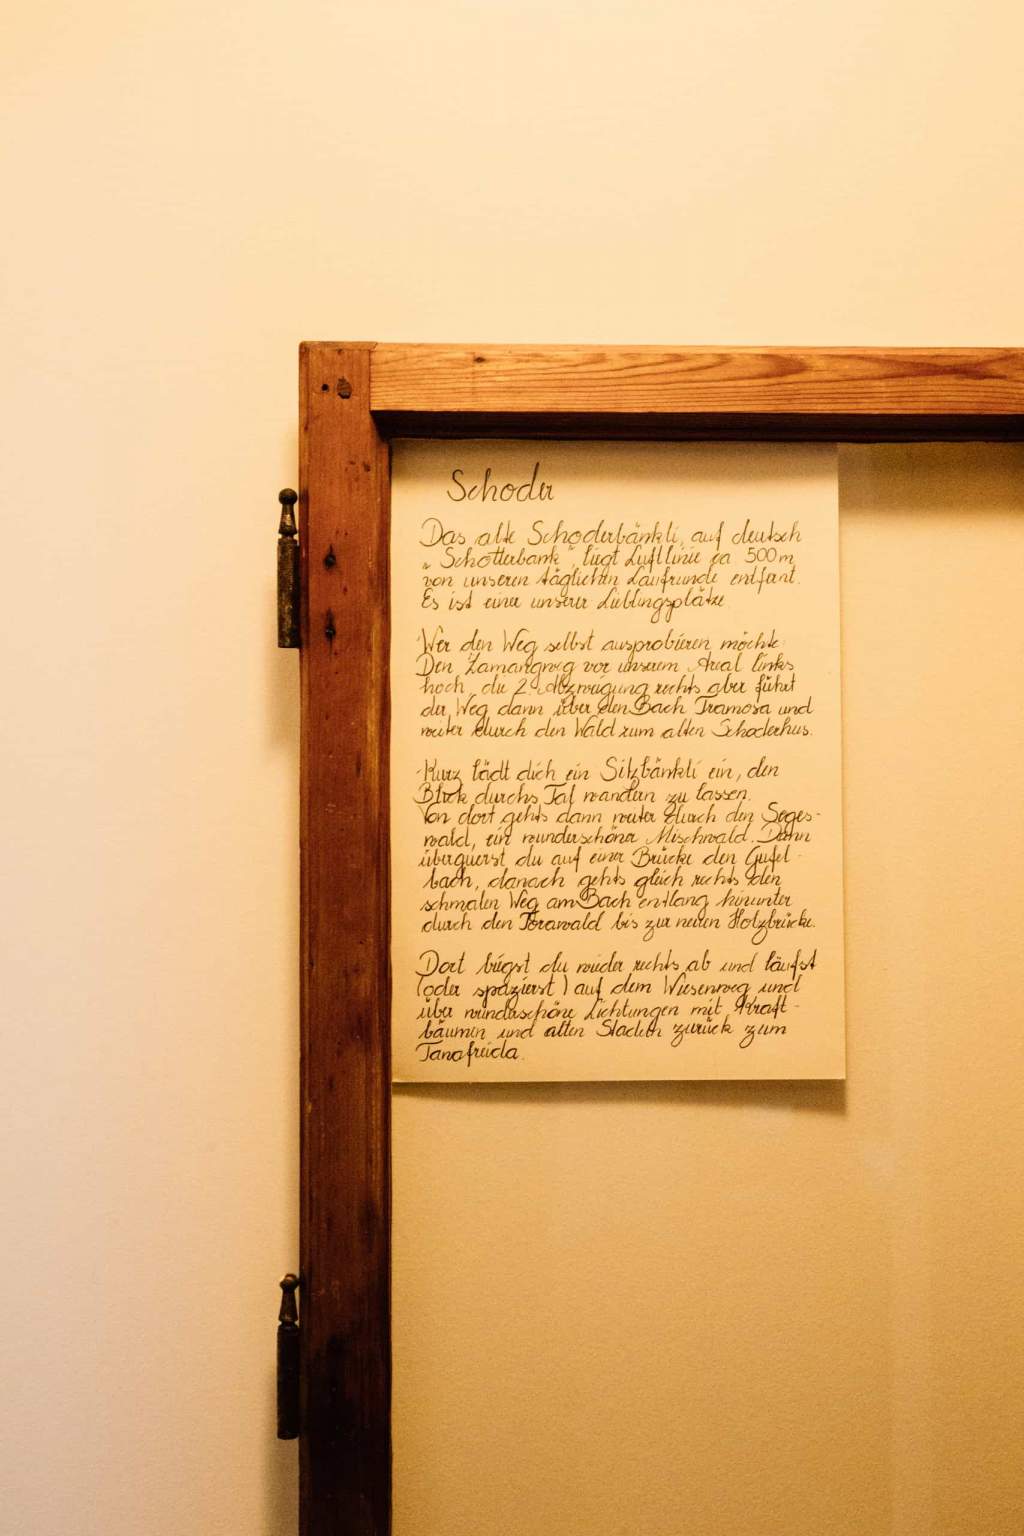 Schoder
Das alte Schoderbänkli, auf deutsch
„Schotterbank", liegt Luftlinie ca 500m
von unseren täglichen Laufrunde entfernt.
Es ist einer unserer Lieblingsplätze.
Wer den Weg selbst ausprobieren möchte:
Den Zamangweg vor unserem Areal links
hoch, die 2. Abzweigung rechts aber führt
der Weg dann über den Bach Tramosa und
weiter durch den Wald zum alten Schoderhus.
Kurz lädt dich ein Sitzbänkli ein, den
Blick durchs Tal wandern zu lassen.
Von dort gehts dann weiter durch den Seges-
wald, ein wunderschöner Mischwald. Dann
überquerst du auf einer Brücke den Gufel-
bach, danach gehts gleich rechts den
schmalen Weg am Bach entlang hinunter
durch den Torawald bis zur neuen Holzbrücke.
Dort biegst du wieder rechts ab und läufst
(oder spazierst) auf dem Wiesenweg und
über wunderschöne Lichtungen mit Kraft-
bäumen und alten Stadeln zurück zum
Tanafreida.